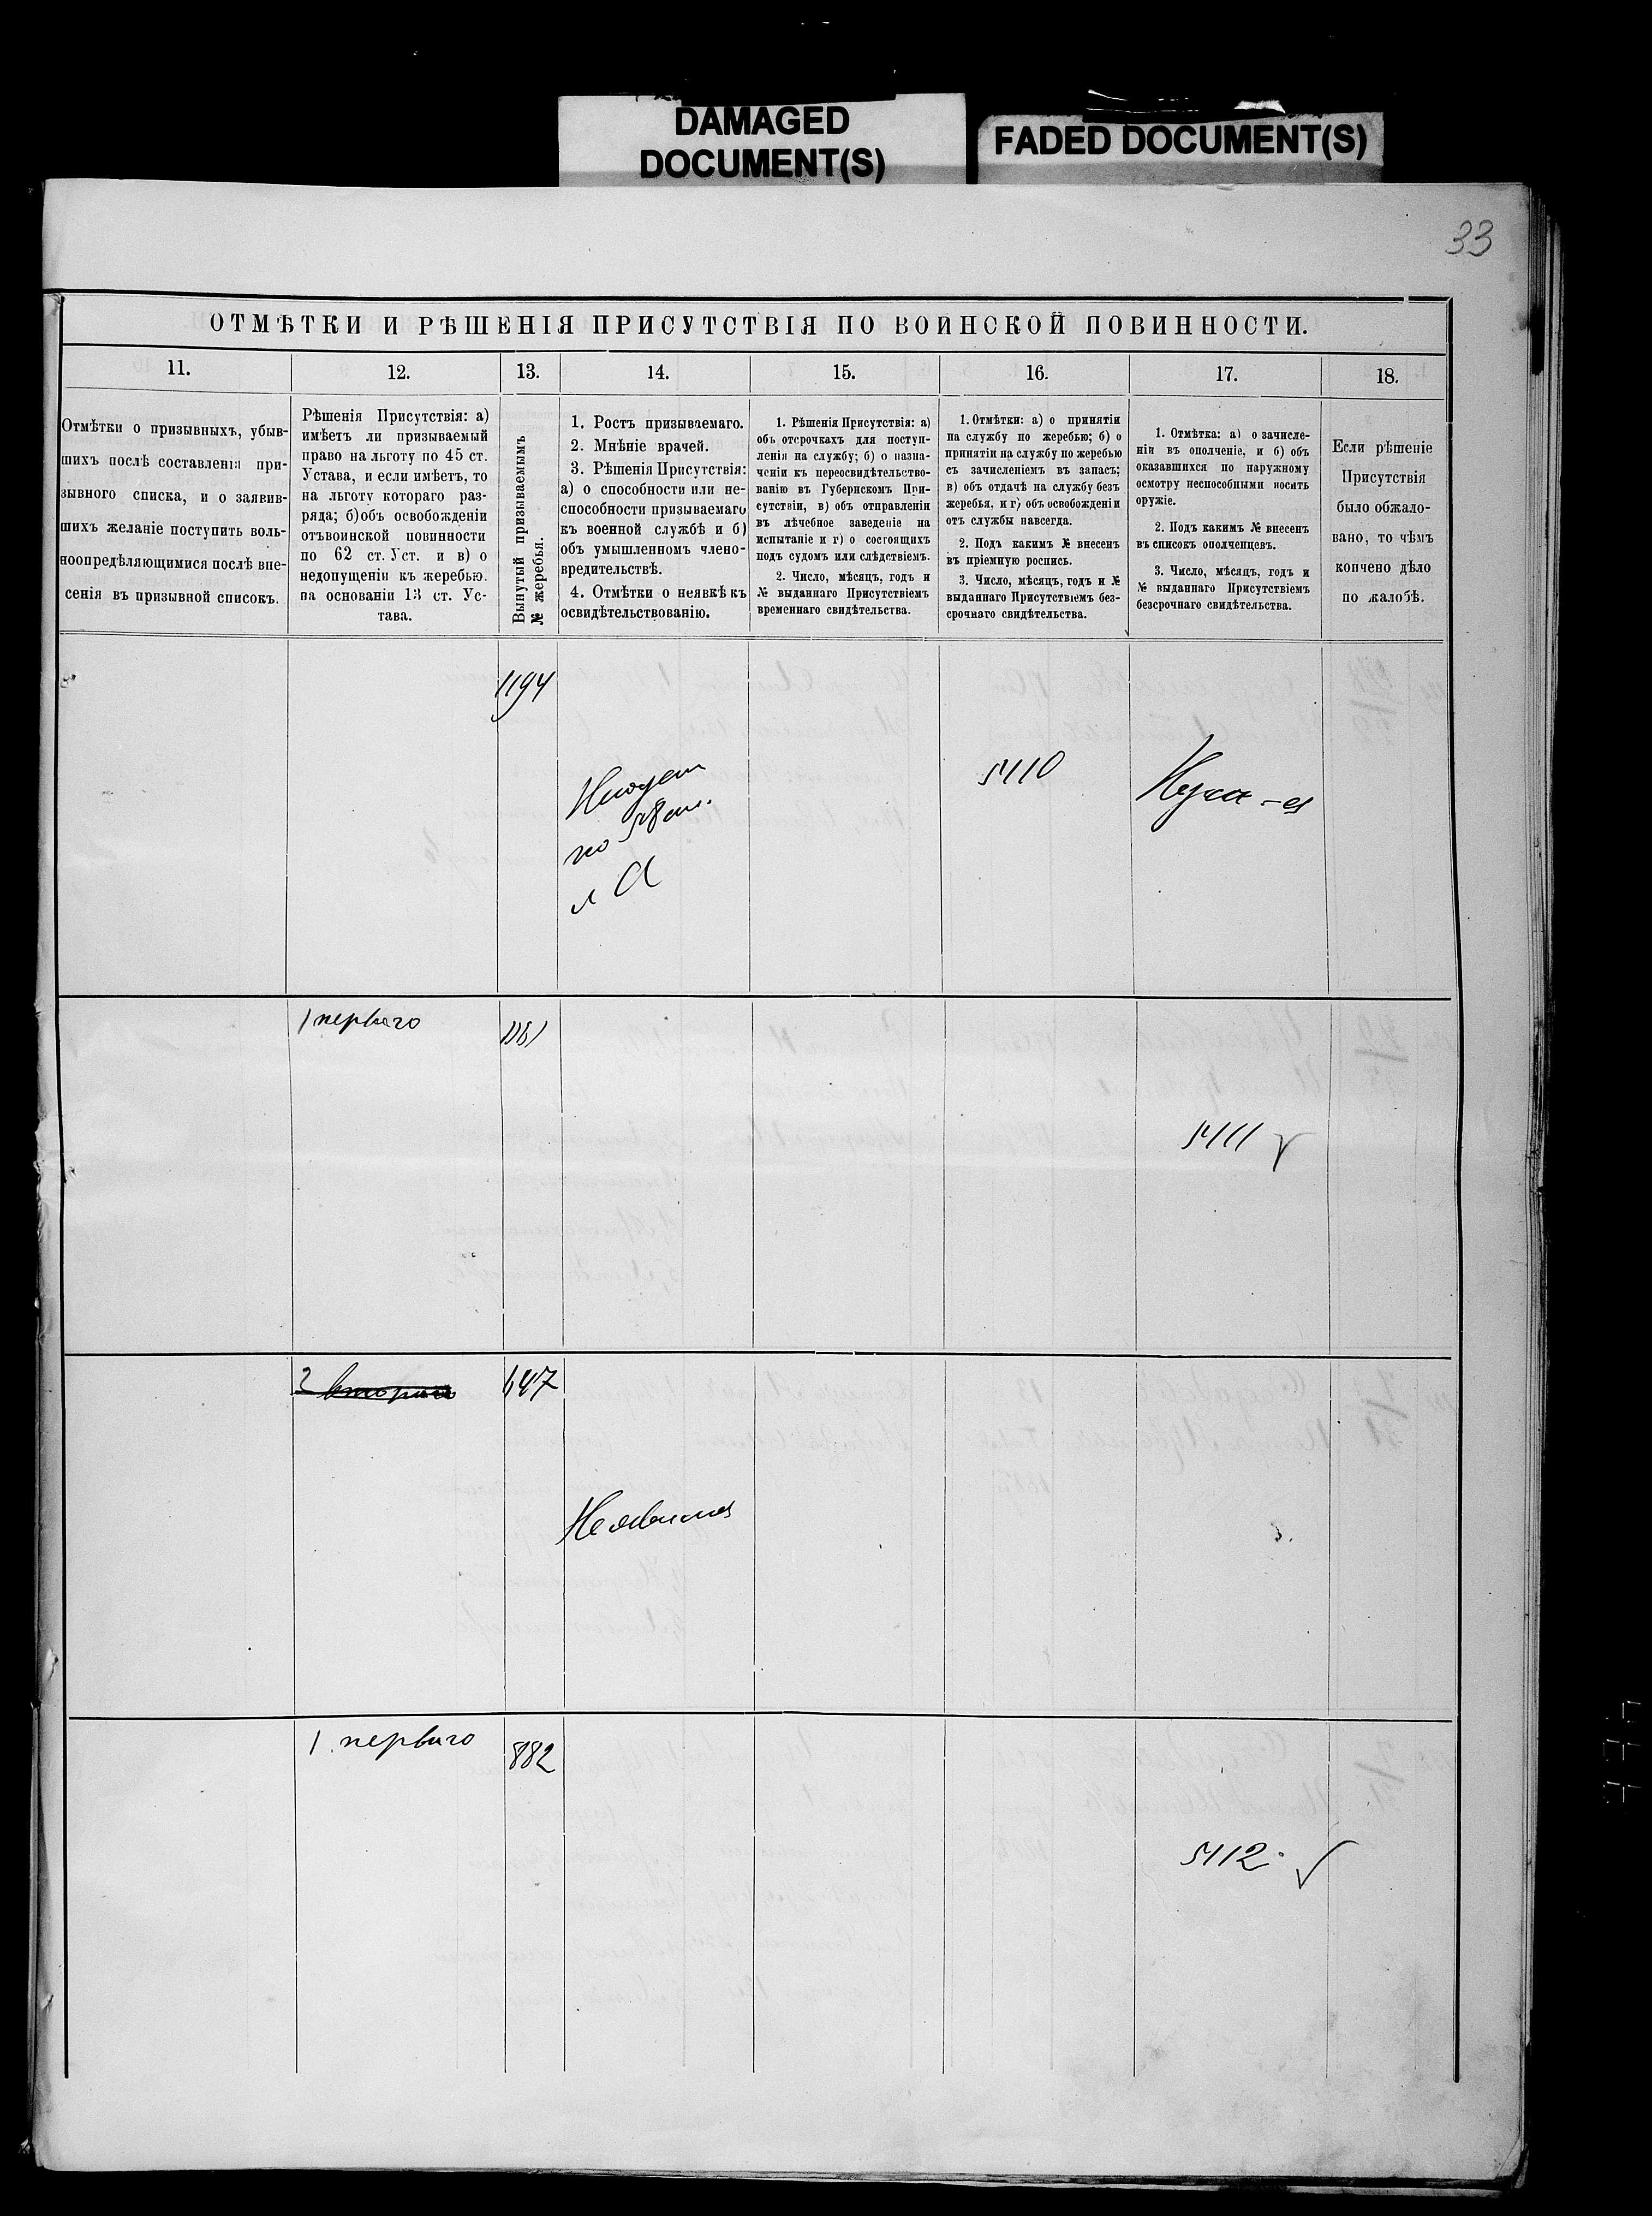 DAMAGED
DOCUMENT(S)
FADED DOCUMENT(S)
33
ОТМѢТКИ И РѢШЕНІЯ ПРИСУТСТВІЯ ПО ВОИНСКОЙ ПОВИННОСТИ.
11.
12.
13.
14.
15.
16.
17.
18.
Отмѣтки о призывныхъ, убыв-
шихъ послѣ составленія при-
зывного списка, и о заявив-
шихъ желаніе поступить воль-
ноопредѣляющимися послѣ вне-
сенія въ призывной списокъ.
Рѣшенія Присутствія: а)
имѣетъ ли призываемый
право на льготу по 45 ст.
Устава, и если имѣетъ, то
на льготу котораго раз-
ряда; б) объ освобожденіи
отъ воинской повинности
по 62 ст. Уст. и в) о
недопущеніи къ жеребью.
на основаніи 13 ст. Ус-
тава.
Вынутый призываемымъ
№ жеребья.
1. Ростъ призываемаго.
2. Мнѣніе врачей.
3. Рѣшенія Присутствія:
а) о способности или не-
способности призываемаго
къ военной службѣ и б)
объ умышленномъ члено-
вредительствѣ.
4. Отмѣтки о неявкѣ къ
освидѣтельствованію.
1. Рѣшенія Присутствія: а)
объ отсрочкахъ для поступ-
ленія на службу; б) о назна-
ченіи къ переосвидѣтельство-
ванію въ Губернскомъ При-
сутствіи, в) объ отправленіи
въ лѣчебное заведеніе на
испытаніе и г) о состоящихъ
подъ судомъ или слѣдствіемъ.
2. Число, мѣсяцъ, годъ и
№ выданнаго Присутствіемъ
временнаго свидѣтельства.
1. Отмѣтки: а) о принятіи
на службу по жеребью; б) о
принятіи на службу по жеребью
съ зачисленіемъ въ запасъ;
в) объ отдачѣ на службу безъ
жеребья, и г) объ освобожденіи
отъ службы навсегда.
2. Подъ какимъ № внесенъ
въ пріемную роспись.
3. Число, мѣсяцъ, годъ и №
выданнаго Присутствіемъ без-
срочнаго свидѣтельства.
1. Отмѣтка: а) о зачисле-
ніи въ ополченіе, и б) объ
оказавшихся по наружному
осмотру неспособными носить
оружіе.
2. Подъ какимъ № внесенъ
въ списокъ ополченцевъ.
3. Число, мѣсяцъ, годъ и
№ выданнаго Присутствіемъ
безсрочнаго свидѣтельства.
Если рѣшеніе
Присутствія
было обжало-
вано, то чѣмъ
кончено дѣло
по жалобѣ.
1194
по 58 ст.
л А
5410
1 перваго
1181
5411
2 втораго
647
Не явился
1 перваго
882
5412